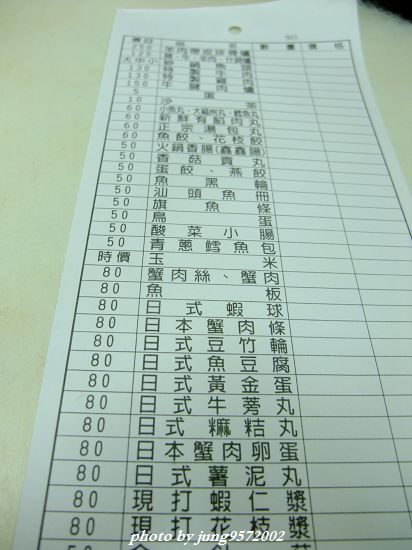 NO
價目 品 名 數 量 價 格
250 羊肉帶皮接骨爐
120
大中小 鍋 魚
130 特 製 豬 肉
130 特 製 雞 肉
150 牛 腱 肉
5 蛋
10 沙 茶
60 小魚丸、大福州丸、鱈魚丸
60 新鮮有餡肉丸
60 正宗湯包丸
60 魚餃、花枝餃
50 火鍋香腸(鑫鑫腸)
50 香菇貢丸
50 蛋餃、燕餃
50 魚 黑 輪
50 汕 頭 魚 冊
50 旗 魚 條
50 鳥 蛋
50 酸 菜 小 腸
50 青蔥鱈魚包
時價 玉 米
80 蟹肉絲、蟹肉
80 魚 板
80 日 式 蝦 球
80 日本蟹肉條
80 日式豆竹輪
80 日式魚豆腐
80 日式黃金蛋
80 日式牛蒡丸
80 日式 糰 秸丸
80 日本蟹肉卵蛋
80 日式薯泥丸
80 現打蝦仁漿
80 現打花枝漿
photo by jung9572002